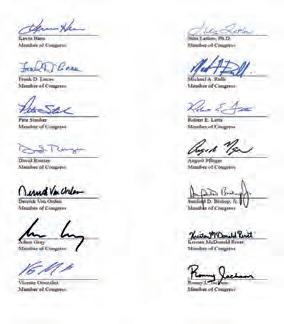 Kevin Hern
Member of Congress
Julia Letlow, Ph.D.
Member of Congress
Frank D. Lucas
Member of Congress
Michael A. Rulli
Member of Congress
Pete Stauber
Member of Congress
Robert E. Latta
Member of Congress
David Rouzer
Member of Congress
August Pfluger
Member of Congress
Derrick Van Orden
Member of Congress
Sanford D. Bishop, Jr.
Member of Congress
Adam Gray
Member of Congress
Kristen McDonald Rivet
Member of Congress
Vicente Gonzalez
Member of Congress
Ronny Jackson
Member of Congress